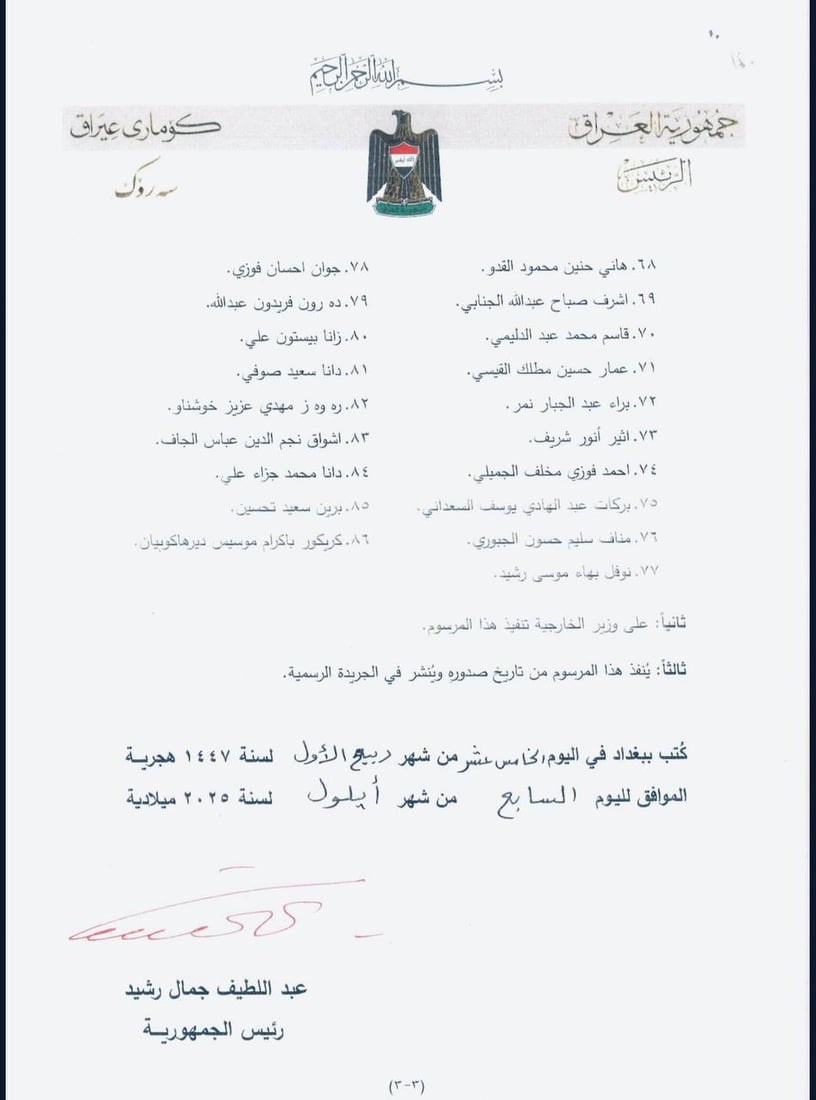 بسم الله الرحمن الرحيم
جمهورية العراق
كۆماری عێراق
الرئيس
سه رۆك
الله أكبر
٦٨. هاني حنين محمود القدو.
٦٩. اشرف صباح عبدالله الجنابي.
٧٠. قاسم محمد عبد الدليمي.
٧١. عمار حسين مطلك القيسي.
٧٢. براء عبد الجبار نمر.
٧٣. اثير أنور شريف.
٧٤. احمد فوزي مخلف الجميلي.
٧٥. بركات عبد الهادي يوسف السعداني.
٧٦. مناف سليم حسون الجبوري.
٧٧. نوفل بهاء موسى رشيد.
٧٨. جوان احسان فوزي.
٧٩. ده رون فريدون عبدالله.
٨٠. زانا بيستون علي.
٨١. دانا سعيد صوفي.
٨٢. ره وه ز مهدي عزيز خوشناو.
٨٣. اشواق نجم الدين عباس الجاف.
٨٤. دانا محمد جزاء علي.
٨٥. برين سعيد تحسين.
٨٦. كريكور باكرام موسيس ديرهاكوبيان.
ثانياً: على وزير الخارجية تنفيذ هذا المرسوم.
ثالثاً: يُنفذ هذا المرسوم من تاريخ صدوره ويُنشر في الجريدة الرسمية.
كُتب ببغداد في اليوم الخامس عشر من شهر ربيع الأول لسنة ١٤٤٧ هجريــة
الموافق لليوم السابع من شهر أيلول لسنة ٢٠٢٥ ميلادية
عبد اللطيف جمال رشيد
رئيس الجمهوريــة
(٣-٣)